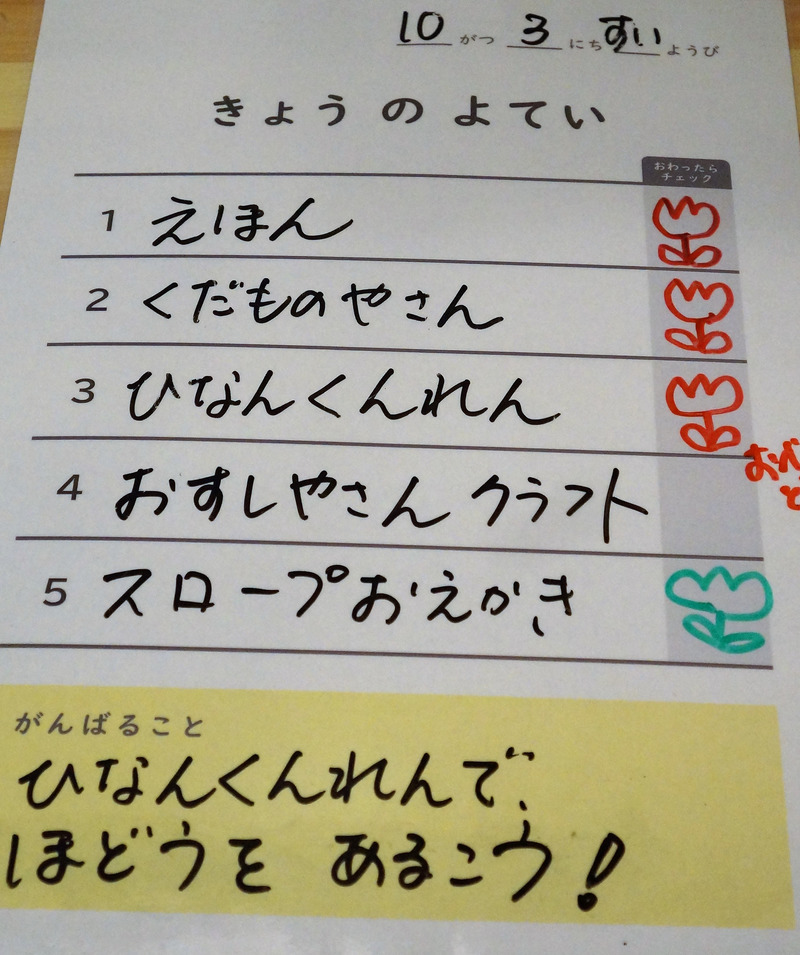 10 がつ 3 にち すい ようび
きょうのよてい
おわったら
チェック
1 えほん
2 くだものやさん
3 ひなんくんれん
4 おすしやさん クラフト
5 スロープおえかき
がんばること
ひなんくんれんで、
ほどうを あるこう!